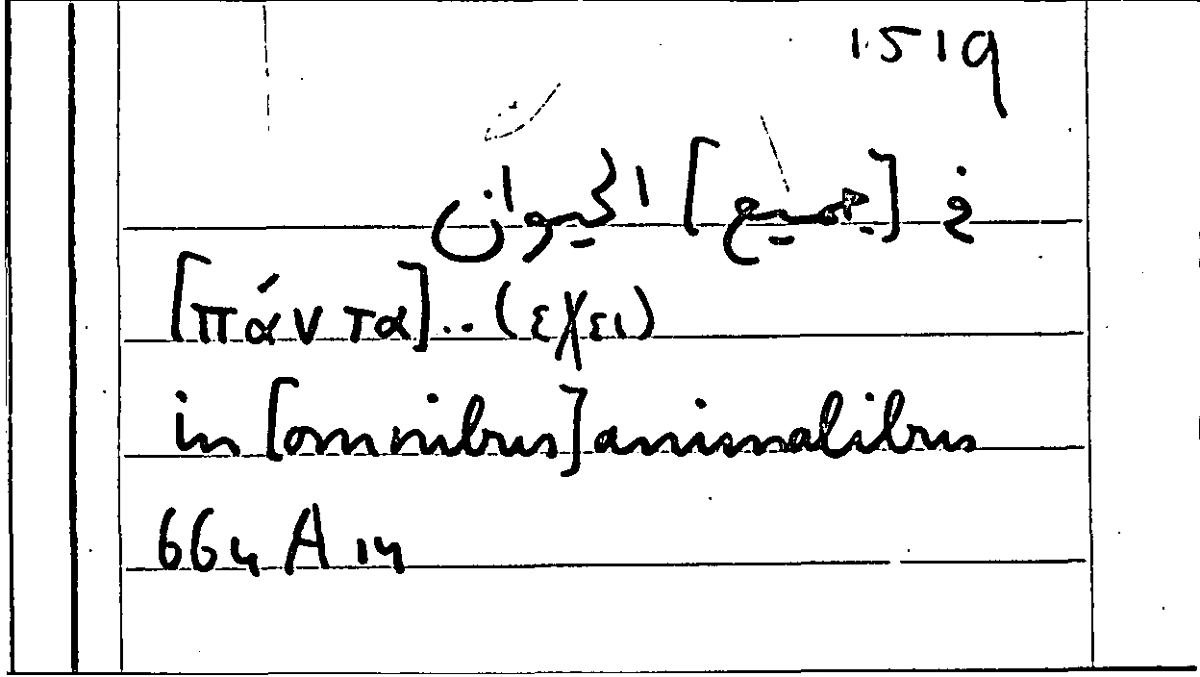 1519
في [جميع] الحيوان
[πάντα].. (εχει)
in [omnibus] animalibus
664 A 14